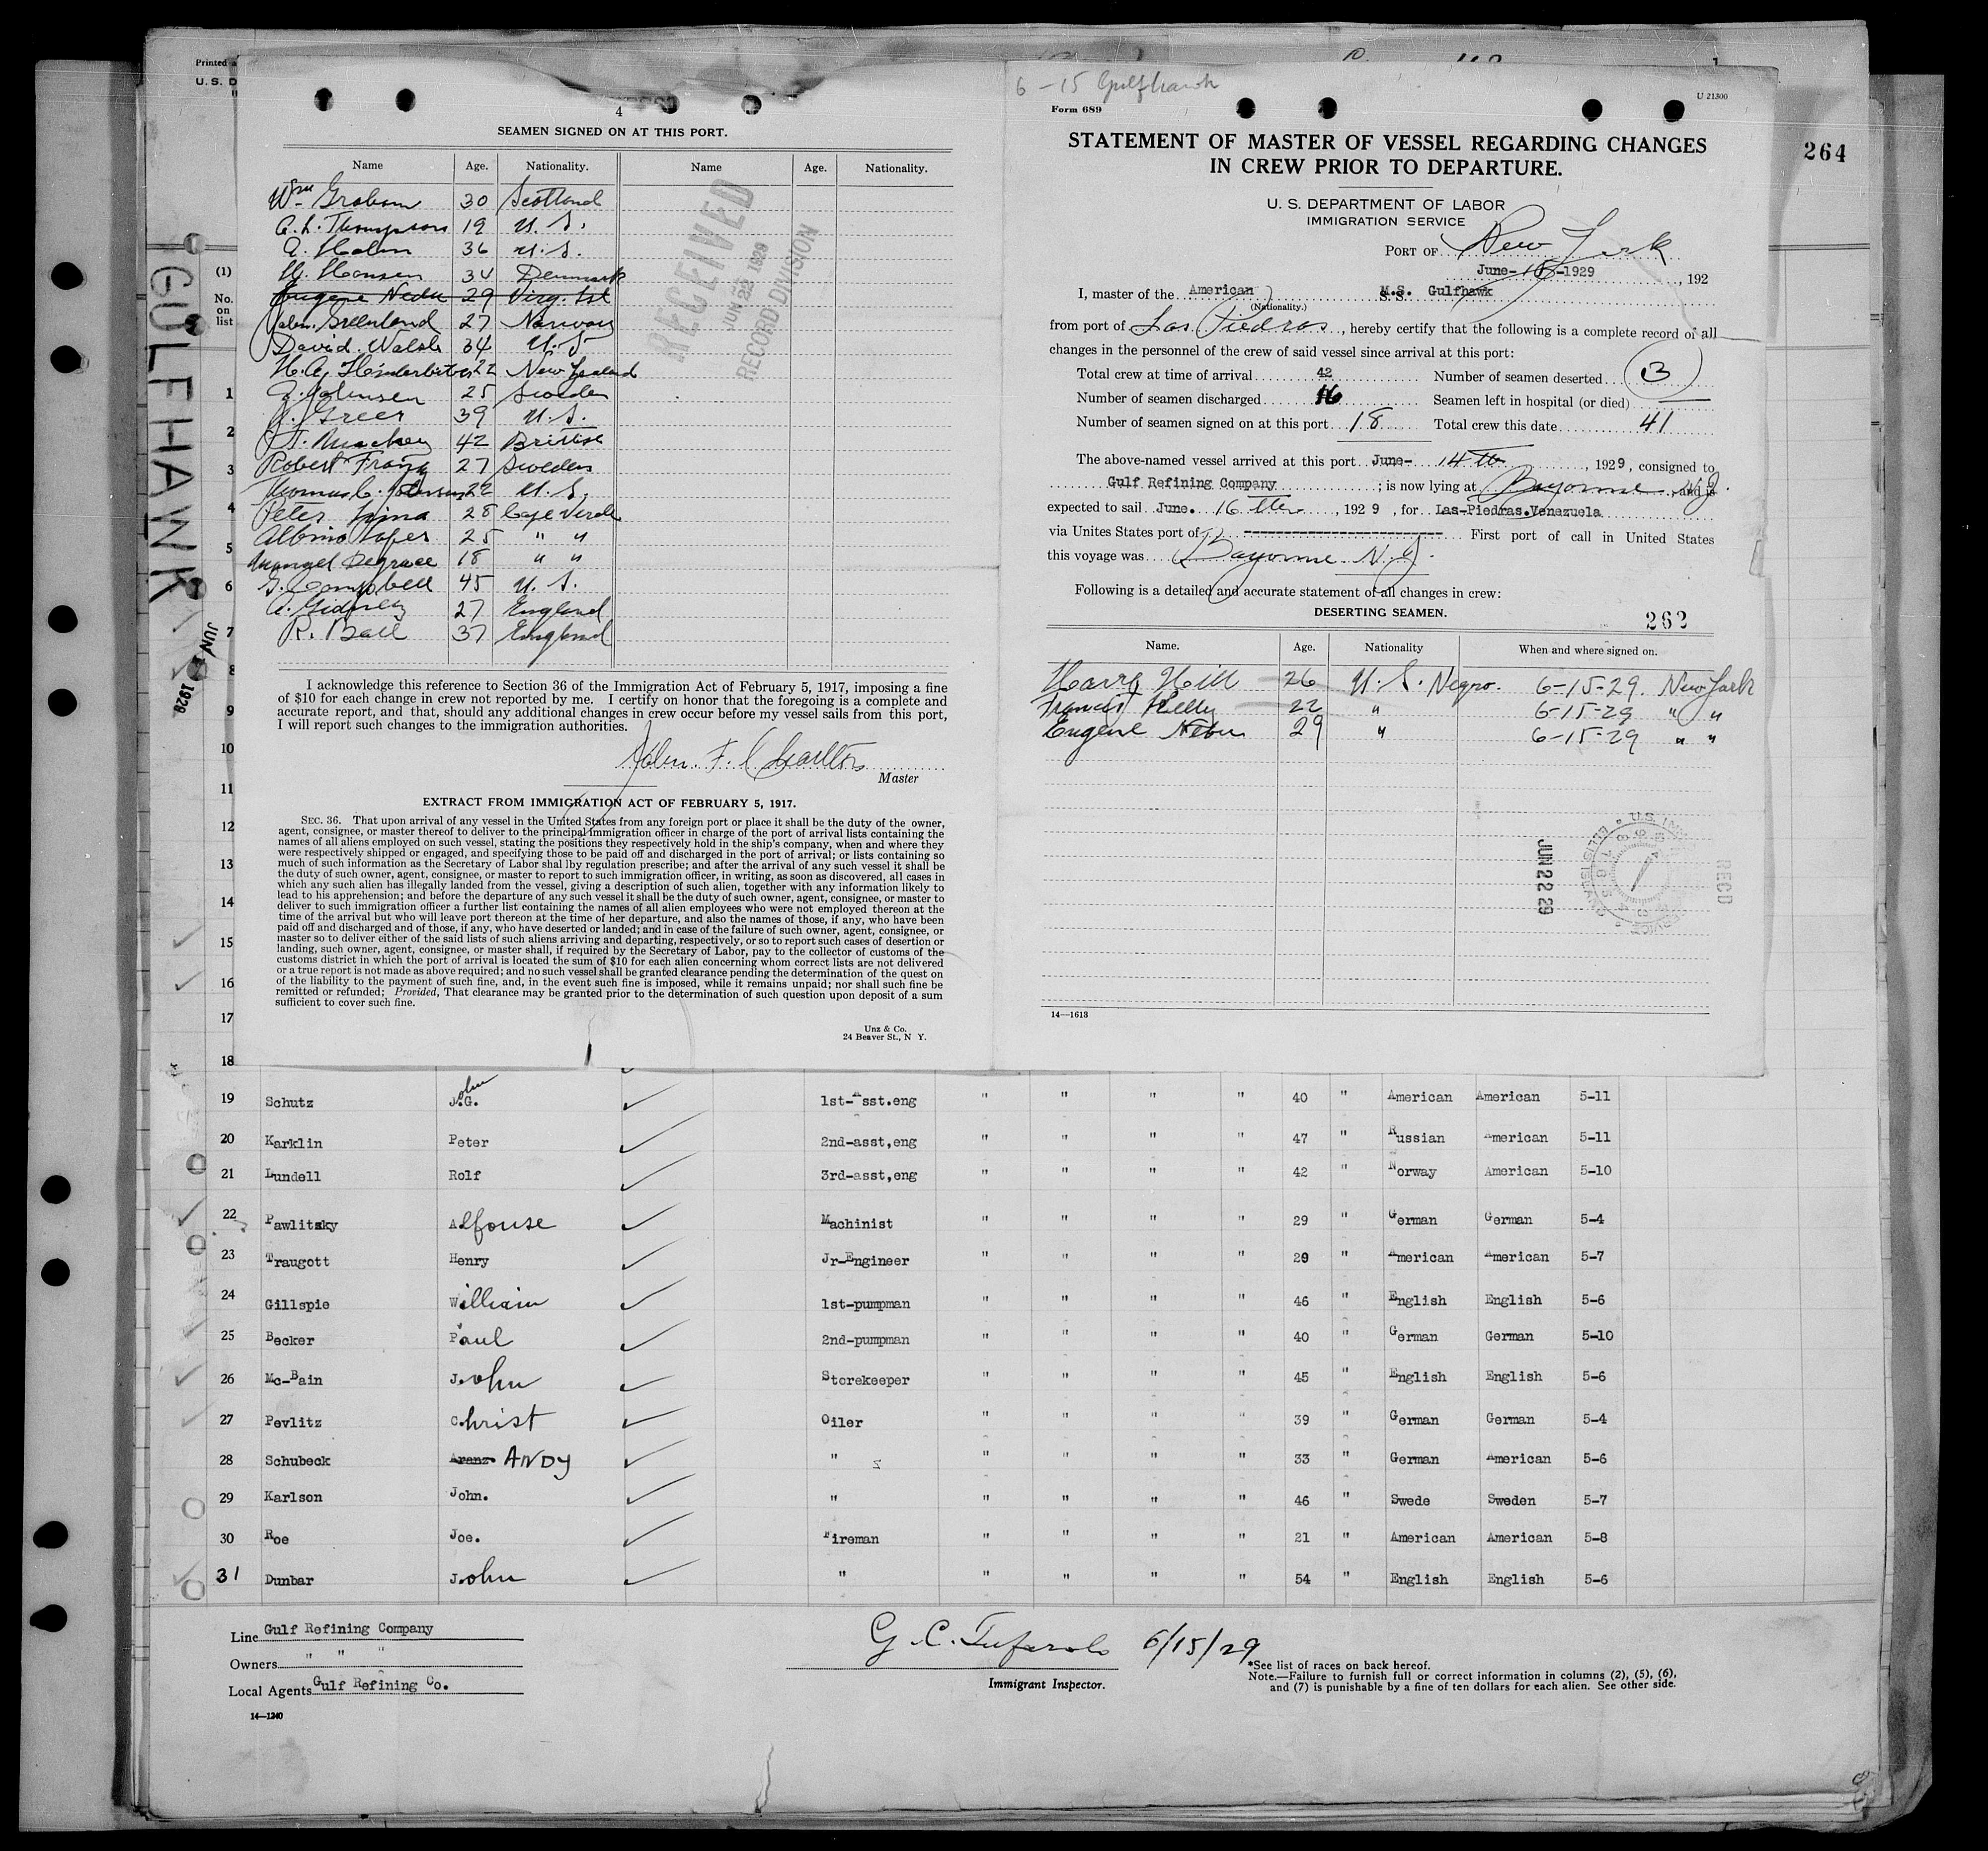 Printed
U. S. D
4
SEAMEN SIGNED ON AT THIS PORT.
Name Age. Nationality. Name Age. Nationality.
Wm Graham 30 Scotland
C. L. Thompson 19 U. S.
A. Holm 36 U. S.
H. Hansen 34 Denmark
Eugene 29 Virg. Isl
27 Norway
David. Walsh 34 U. S
22 New Zealand
J. Johnsen 25 Sweden
J. Greer 39 U. S.
Mackey 42 British
Robert Franz 27 Sweden
Thomas C. 22 U. S.
Peter 28 Cape Verde
Albino Lopes 25 " "
18 " "
G. Campbell 45 U. S.
27 England
R. Ball 37 England
RECEIVED
JUN 22 1929
RECORD DIVISION
I acknowledge this reference to Section 36 of the Immigration Act of February 5, 1917, imposing a fine
of $10 for each change in crew not reported by me. I certify on honor that the foregoing is a complete and
accurate report, and that, should any additional changes in crew occur before my vessel sails from this port,
I will report such changes to the immigration authorities.
John. F. Charlton
Master
EXTRACT FROM IMMIGRATION ACT OF FEBRUARY 5, 1917.
SEC. 36. That upon arrival of any vessel in the United States from any foreign port or place it shall be the duty of the owner,
agent, consignee, or master thereof to deliver to the principal immigration officer in charge of the port of arrival lists containing the
names of all aliens employed on such vessel, stating the positions they respectively hold in the ship's company, when and where they
were respectively shipped or engaged, and specifying those to be paid off and discharged in the port of arrival; or lists containing so
much of such information as the Secretary of Labor shal lby regulation prescribe; and after the arrival of any such vessel it shall be
the duty of such owner, agent, consignee, or master to report to such immigration officer, in writing, as soon as discovered, all cases in
which any such alien has illegally landed from the vessel, giving a description of such alien, together with any information likely to
lead to his apprehension; and before the departure of any such vessel it shall be the duty of such owner, agent, consignee, or master to
deliver to such immigration officer a further list containing the names of all alien employees who were not employed thereon at the
time of the arrival but who will leave port thereon at the time of her departure, and also the names of those, if any, who have been
paid off and discharged and of those, if any, who have deserted or landed; and in case of the failure of such owner, agent, consignee, or
master so to deliver either of the said lists of such aliens arriving and departing, respectively, or so to report such cases of desertion or
landing, such owner, agent, consignee, or master shall, if required by the Secretary of Labor, pay to the collector of customs of the
customs district in which the port of arrival is located the sum of $10 for each alien concerning whom correct lists are not delivered
or a true report is not made as above required; and no such vessel shall be granted clearance pending the determination of the quest on
of the liability to the payment of such fine, and, in the event such fine is imposed, while it remains unpaid; nor shall such fine be
remitted or refunded; Provided, That clearance may be granted prior to the determination of such question upon deposit of a sum
sufficient to cover such fine.
Unz & Co.
24 Beaver St., N Y.
6 - 15 Gulfhawk
Form 689
U 21300
STATEMENT OF MASTER OF VESSEL REGARDING CHANGES
IN CREW PRIOR TO DEPARTURE.
U. S. DEPARTMENT OF LABOR
IMMIGRATION SERVICE
PORT OF New York
June-15-1929, 192
I, master of the American M.S. Gulfhawk
(Nationality.)
from port of Las Piedras, hereby certify that the following is a complete record of all
changes in the personnel of the crew of said vessel since arrival at this port:
Total crew at time of arrival 42 Number of seamen deserted 3
Number of seamen discharged 16 Seamen left in hospital (or died) —
Number of seamen signed on at this port 18 Total crew this date 41
The above-named vessel arrived at this port June- 14th, 1929, consigned to
Gulf Refining Company; is now lying at Bayonne N.J., and is
expected to sail June. 16th, 1929, for Las-Piedras.Venezuela
via Unites States port of First port of call in United States
this voyage was Bayonne N. J.
Following is a detailed and accurate statement of all changes in crew:
DESERTING SEAMEN.
262
Name. Age. Nationality When and where signed on.
Harry Hill 26 U. S. Negro. 6-15-29. New York
Francis Kelly 22 " 6-15-29 " "
Eugene 29 " 6-15-29 " "
JUN 22 29
RECD
14—1613
264
GULFHAWK
JUN 1929
(1)
No.
on
list
1
2
3
4
5
6
7
8
9
10
11
12
13
14
15
16
17
18
19 Schutz J.G. John 1st-Asst.eng " " " " 40 " American American 5-11
20 Karklin Peter 2nd-asst,eng " " " " 47 " Russian American 5-11
21 Lundell Rolf 3rd-asst,eng " " " " 42 " Norway American 5-10
22 Pawlitsky Alfonse Machinist " " " " 29 " German German 5-4
23 Traugott Henry Jr-Engineer " " " " 29 " American American 5-7
24 Gillspie William 1st-pumpman " " " " 46 " English English 5-6
25 Becker Paul 2nd-pumpman " " " " 40 " German German 5-10
26 Mc-Bain John Storekeeper " " " " 45 " English English 5-6
27 Pevlitz Christ Oiler " " " " 39 " German German 5-4
28 Schubeck Aranz ANDY " " " " " 33 " German American 5-6
29 Karlson John. " " " " " 46 " Swede Sweden 5-7
30 Roe Joe. Fireman " " " " 21 " American American 5-8
31 Dunbar John " " " " " 54 " English English 5-6
Line Gulf Refining Company
Owners " " "
Local Agents Gulf Refining Co.
14—1240
6/15/29
Immigrant Inspector.
*See list of races on back hereof.
Note.—Failure to furnish full or correct information in columns (2), (5), (6),
and (7) is punishable by a fine of ten dollars for each alien. See other side.